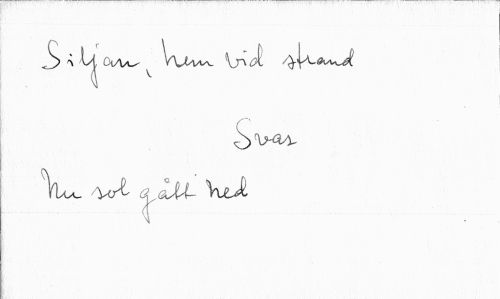 Siljan, hem vid strand
Svas
Nu sol gått ned